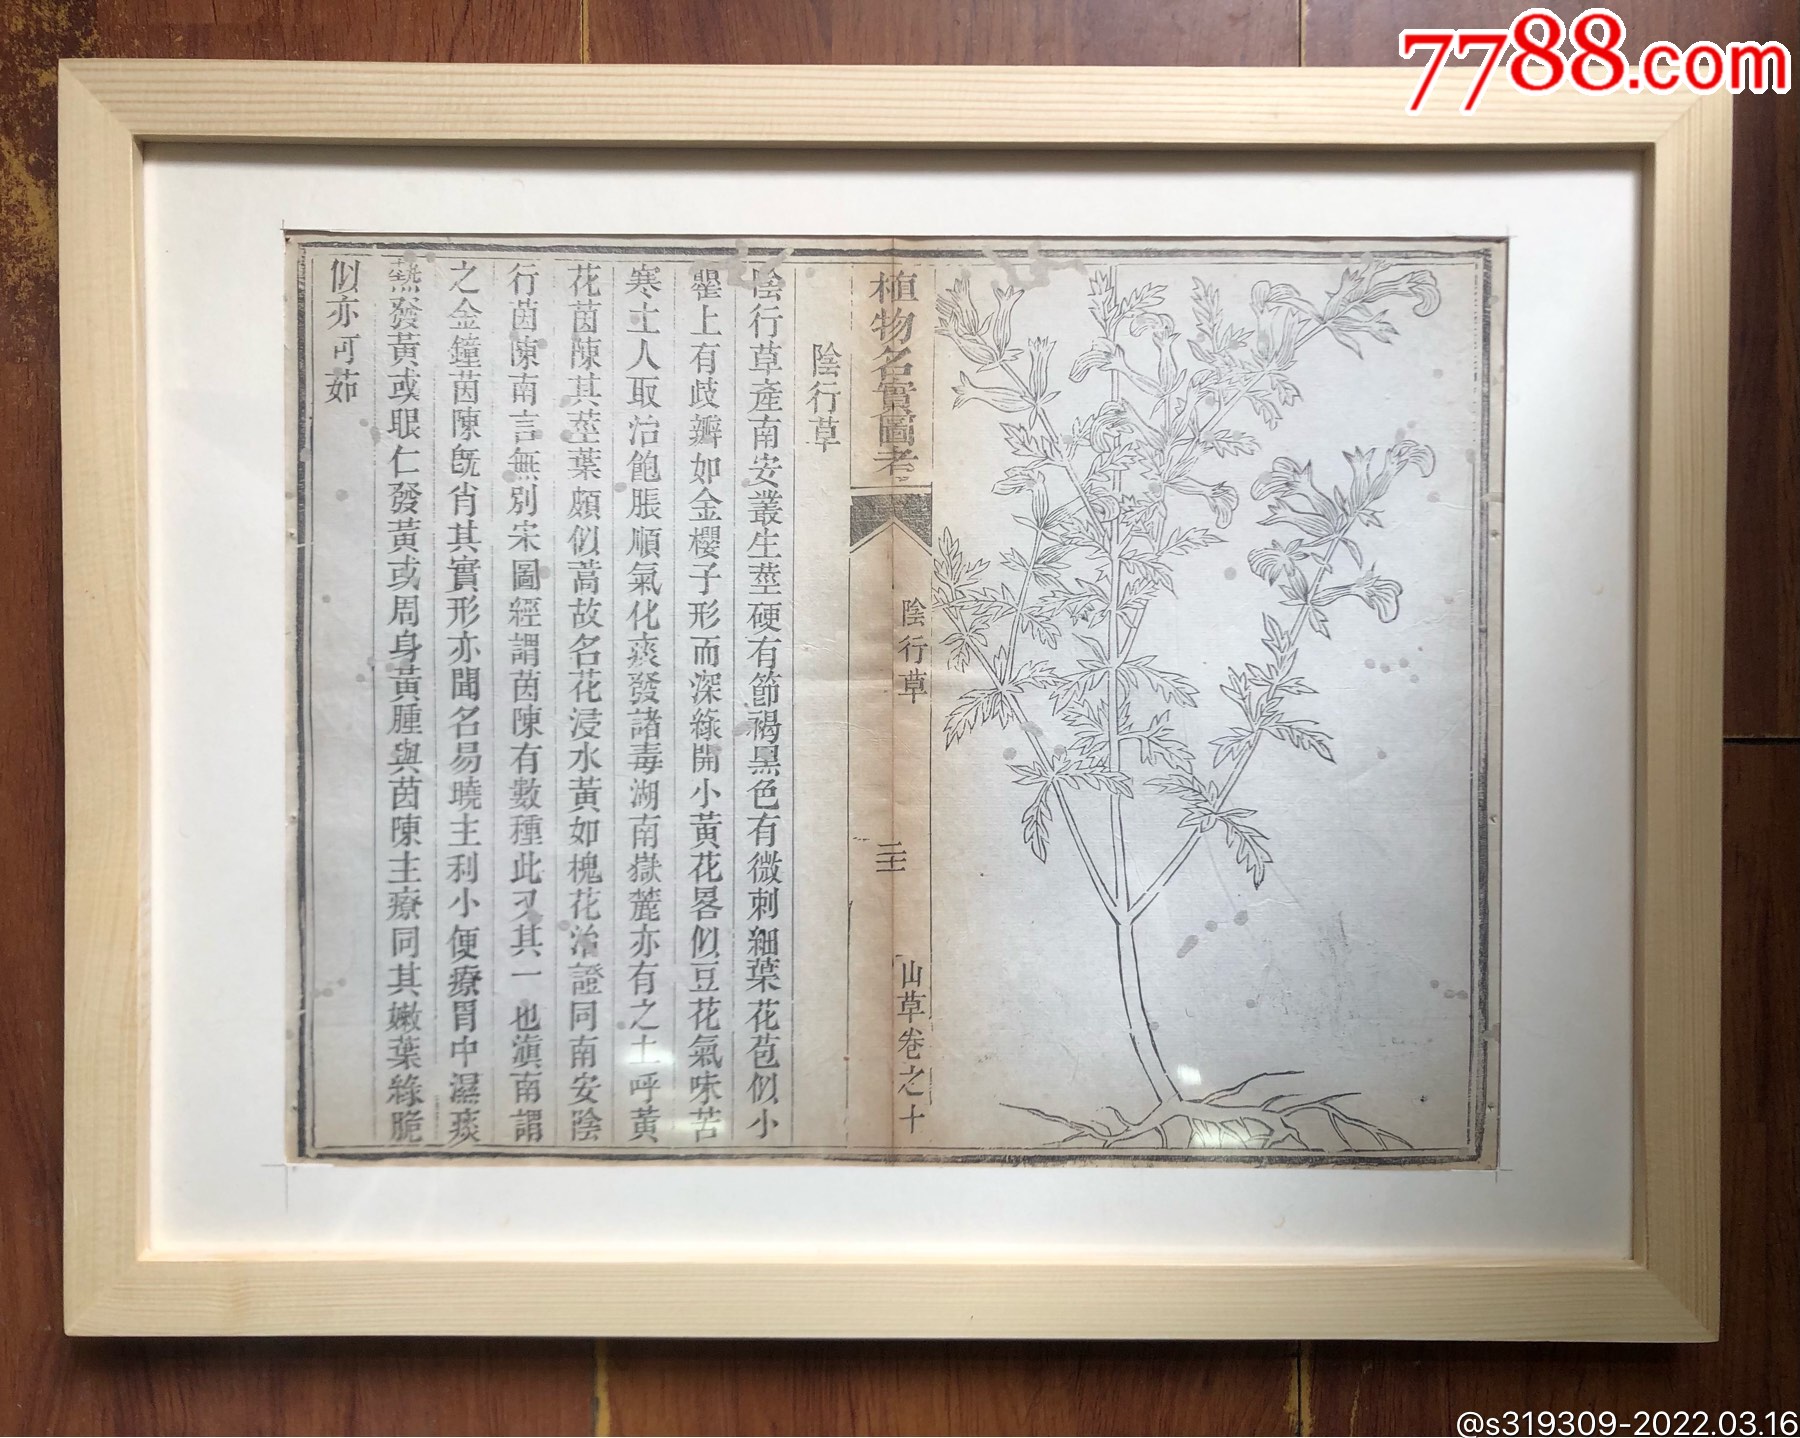 7788.com
植物名實圖考
陰行草
二十一
山草卷之十
陰行草
陰行草產南安叢生莖硬有節褐黑色有微刺細葉花苞似小
罌上有歧瓣如金櫻子形而深綠開小黃花畧似豆花氣味苦
寒土人取治飽脹順氣化痰發諸毒湖南嶽麓亦有之土呼黃
花茵陳其莖葉頗似蒿故名花浸水黃如槐花治證同南安陰
行茵陳南言無別宋圖經謂茵陳有數種此又其一也滇南謂
之金鐘茵陳既肖其實形亦聞名易曉主利小便療胃中濕痰
熱發黃或眼仁發黃或周身黃腫與茵陳主療同其嫩葉綠脆
似亦可茹
@s319309-2022.03.16